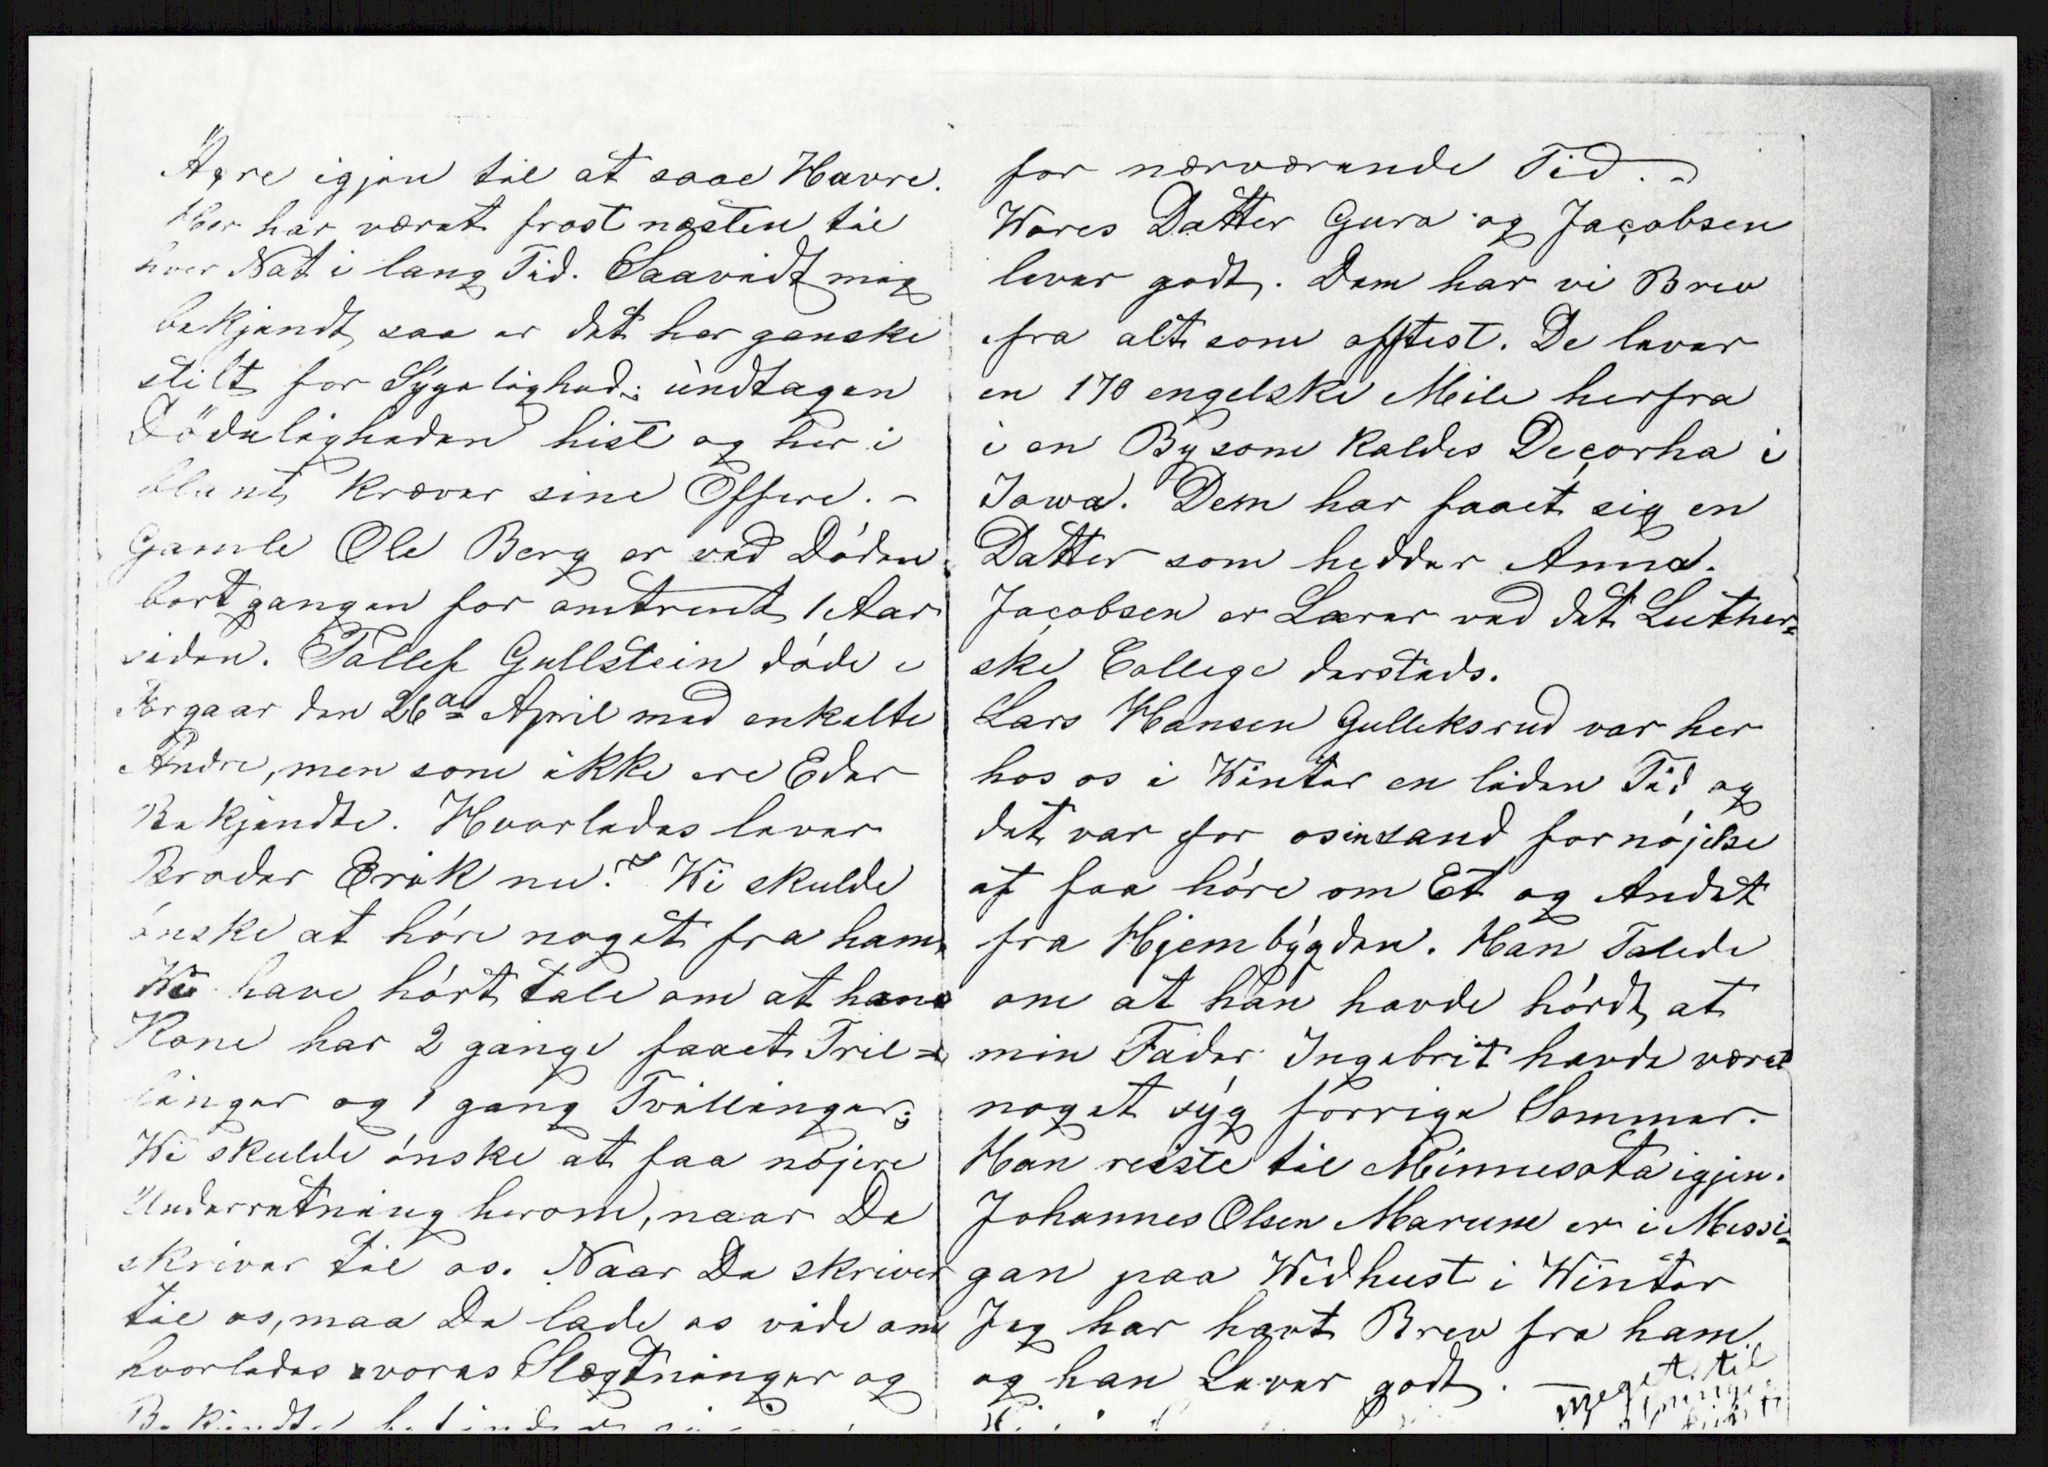 Acre igjen til at saae Havre.
Her har været frost næsten til
hver Nat i lang Tid. Saavidt mig
bekjendt saa er det her ganske
stilt for Sygelighed; undtagen
Dödeligheden hist og her i
blant kræver sine Offere. –
Gamle Ole Berg er ved Döden
bortgangen for omtrent 1 Aar
siden. Tollef Gullstein döde i
Forgaar den 26de April med enkelte
Andre, men som ikke ere Eder
Bekjendte. Hvorledes lever
Broder Erik nu? Wi skulde
önske at höre noget fra ham.
Wi have hört tale om at hans
Kone har 2 gange faaet Tril-
linger og 1 gang Tvillinger;
Wi skulde önske at faa nöjere
Underretning herom, naar De
skriver til os. Naar De skriver
til os, maa De lade os vide om
hvorledes vores Slægtninger og
Bekjendte befinder
for nærværende Tid. –
Wores Datter Guro og Jacobsen
lever godt. Dem har vi Brev
fra alt som oftest. De lever
en 170 engelske Mile herfra
i en By som kaldes Decorha i
Iowa. Dem har faaet sig en
Datter som hedder Anna.
Jacobsen er Lærer ved det Luther-
ske College dersteds.
Lars Hansen Gulleksrud var her
hos os i Winter en liden Tid og
det var for os en sand fornöjelse
at faa höre om Et og Andet
fra Hjembygden. Han Talede
om at han havde hördt at
min Fader Ingebrit havde været
noget syg forrige Sommer.
Han reiste til Minnesota igjen.
Johannes Olsen Marum er i Missi-
gan paa Widhust i Winter
Jeg har havt Brev fra ham
og han Lever godt. – meget til